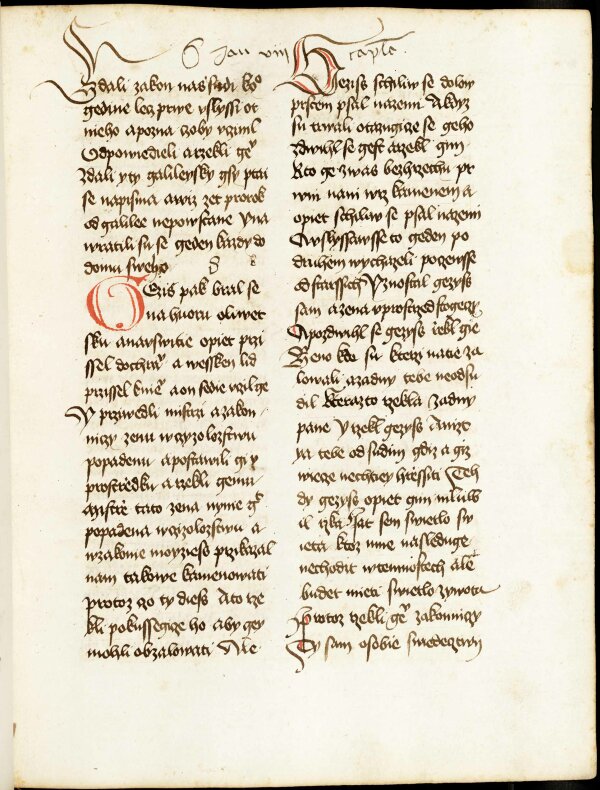 6 Jan viii caple
Zdali zakon nas sudi koº
gedine lecz prwe vslyssi ot
nieho a pozna czoby vczinil
Odpowiedieli a rzekli geᵘ
Zdali y ty galileysky gsy ptai
se na pisma a wiz zet prorok
od galilee nepowstane Y na
wratili su se geden kazdy do
domu sweho 8
Gezis pak bral se
na huoru oliwet
sku a na uswitie opiet przi
ssel do chrāᵘ a wessken lid
przissel k nieᵘ a on sedie vczil ge
Y przwedli mistrzi a zakon
niczy zenu w czyzolozstwu
popadenu a postawili gi v
prostredku a rzekli gemu
mistrze tato zena nynie gest
popadena w czyzolozstwu a
w zakonie moyziess przikazal
nam takowe kamenowati
protoz czo ty diess A to rze
kli pokussegicze ho aby gey
mohli obzalowati Ale
Gezis schiliw se dolow
prstem psal na zemi A kdyz
su trwali otazugicze se geho
zdwihl se gest a rzekl gim
Kto ge z was bez hrziechu pr
wni na ni wrz kamenem a
opiet schiliw se psal na zemi
A vslyssawsse to geden po
druhem wychazeli poczensse
od starssich Y zuostal gezys
sam a zena v prostred stogiczy
A pozdwihl se gezys rzekl gie
Zeno kde su kterzi na tie za
lowali a zadny tebe neodsu
dil Kterazto rzekla zadny
pane Y rzekl gezys Aniz
ya tebe odsudim gdiz a giz
wiecze nechtiey hrzessiti Teh
dy gezys opiet gim mluw
il rzka Jat sem swietlo sw
ieta ktoz mne nasleduge
nechodit w temnostech ale
budet mieti swietlo zywota
Protoz rzekli geᵘ zakonniczy
Ty sam o sobie swiedecztwy